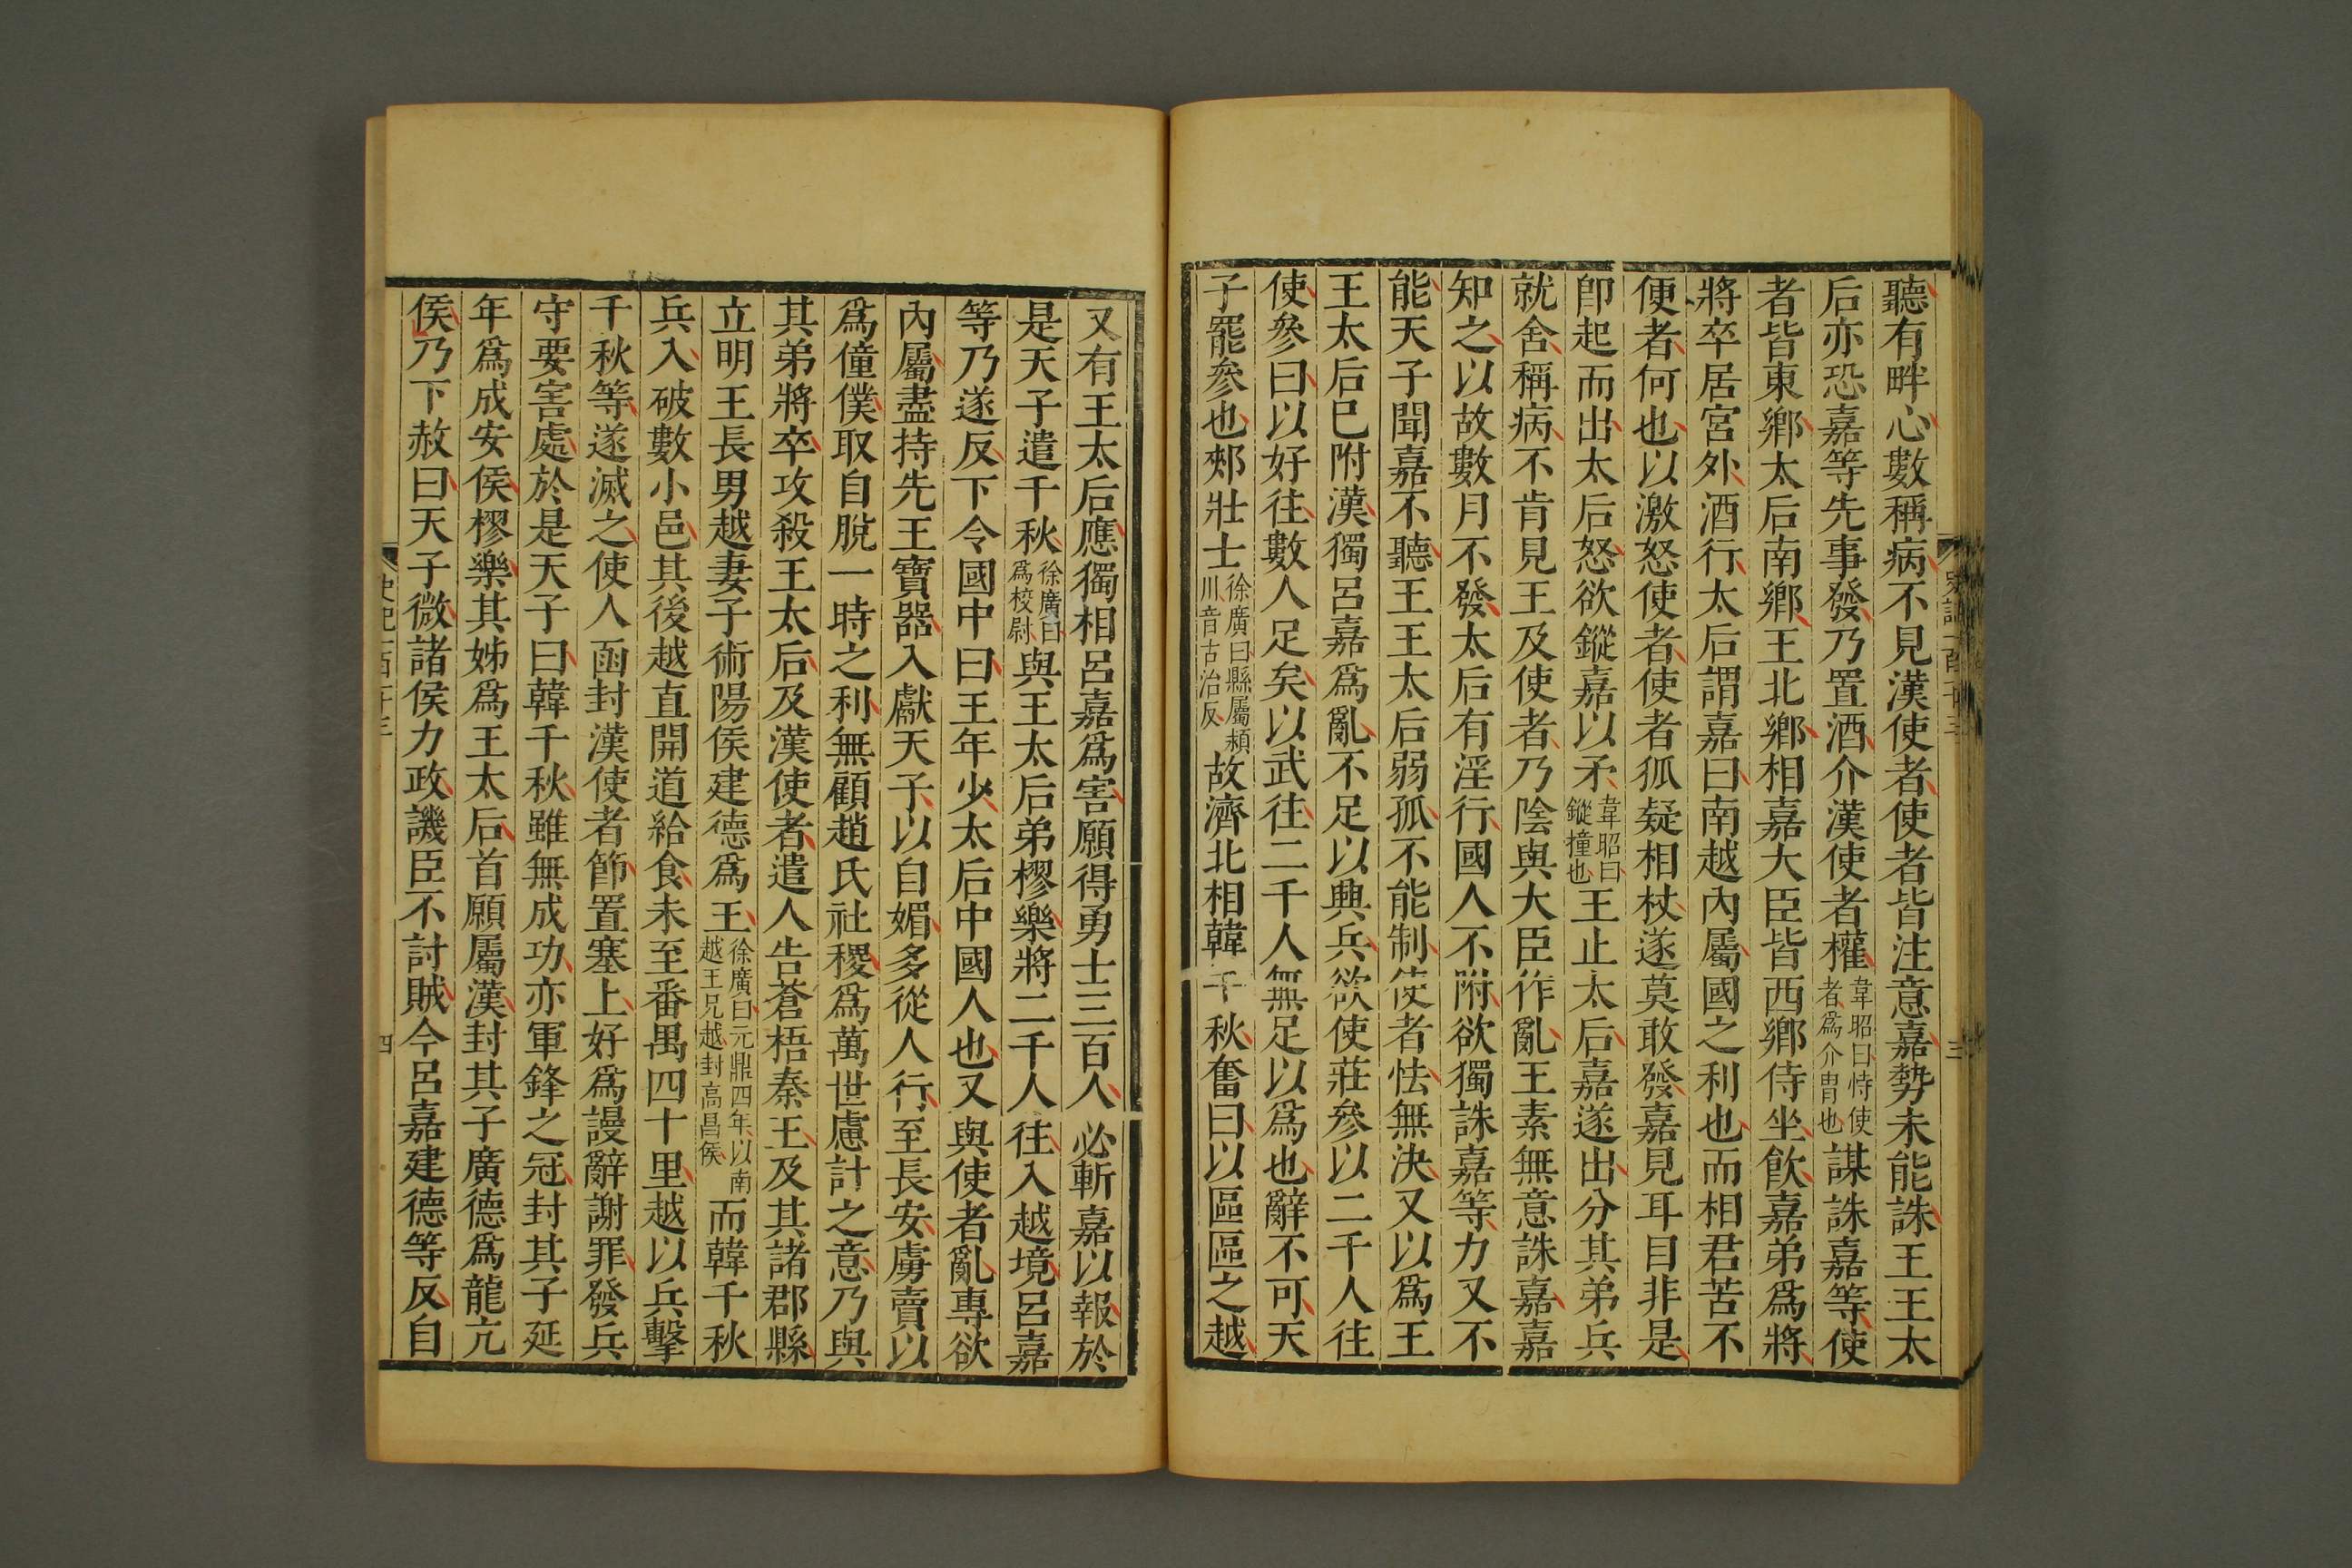 聽有畔心數稱病不見漢使者使者皆注意嘉勢未能誅王王太
后亦恐嘉等先事發乃置酒介漢使者權韋昭曰恃使者爲介冑也謀誅嘉等使
者皆東鄉太后南鄉王北鄉相嘉大臣皆西鄉侍坐飮嘉弟爲將
將卒居宮外酒行太后謂嘉曰南越內屬國之利也而相君苦不
便者何也以激怒使者使者狐疑相杖遂莫敢發嘉見耳目非是
卽起而出太后怒欲鏦嘉以矛韋昭曰鏦撞也王止太后嘉遂出分其弟兵
就舍稱病不肯見王及使者乃陰與大臣作亂王素無意誅嘉嘉
知之以故數月不發太后有淫行國人不附欲獨誅嘉等力又不
能天子聞嘉不聽王王太后弱孤不能制使者怯無決又以爲王
王太后已附漢獨呂嘉爲亂不足以興兵欲使莊參以二千人往
使參曰以好往數人足矣以武往二千人無足以爲也辭不可天
子罷參也郟壯士徐廣曰縣屬潁川音古洽反故濟北相韓千秋奮曰以區區之越
史記一百十三
三
又有王太后應獨相呂嘉爲害願得勇士三百人必斬嘉以報於
是天子遣千秋徐廣曰爲校尉與王太后弟樛樂將二千人往入越境呂嘉
等乃遂反下令國中曰王年少太后中國人也又與使者亂專欲
內屬盡持先王寶器入獻天子以自媚多從人行至長安虜賣以
爲僮僕取自脫一時之利無顧趙氏社稷爲萬世慮計之意乃與
其弟將卒攻殺王太后及漢使者遣人告蒼梧秦王及其諸郡縣
立明王長男越妻子術陽侯建德爲王徐廣曰元鼎四年以南越王兄越封高昌侯而韓千秋
兵入破數小邑其後越直開道給食未至番禺四十里越以兵擊
千秋等遂滅之使人函封漢使者節置塞上好爲謾辭謝罪發兵
守要害處於是天子曰韓千秋雖無成功亦軍鋒之冠封其子延
年爲成安侯樛樂其姊爲王太后首願屬漢封其子廣德爲龍亢
侯乃下赦曰天子微諸侯力政譏臣不討賊今呂嘉建德等反自
史記一百十三
四